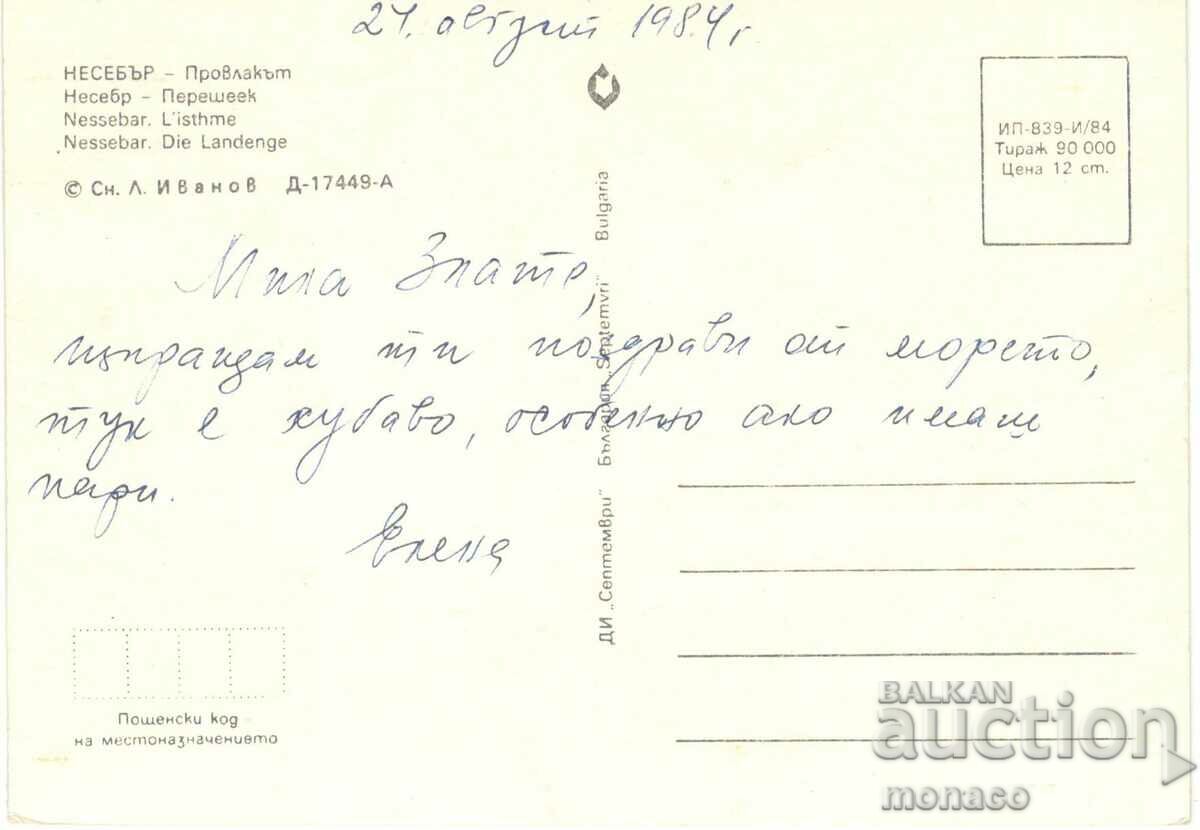 24. август 1984 г
НЕСЕБЪР – Провлакът
Несебр – Перешеек
Nessebar. L'isthme
Nessebar. Die Landenge
© Сн. Л. Иванов Д-17449-А
ИП-839-И/84
Тираж 90 000
Цена 12 ст.
Мила Злате,
изпращам ти поздрави от морето,
тук е хубаво, особено ако имаш
пари.
Елена
ДИ „Септември" Български „Septemvri" Bulgaria
Пощенски код
на местоназначението
BALKAN
auction
monaco